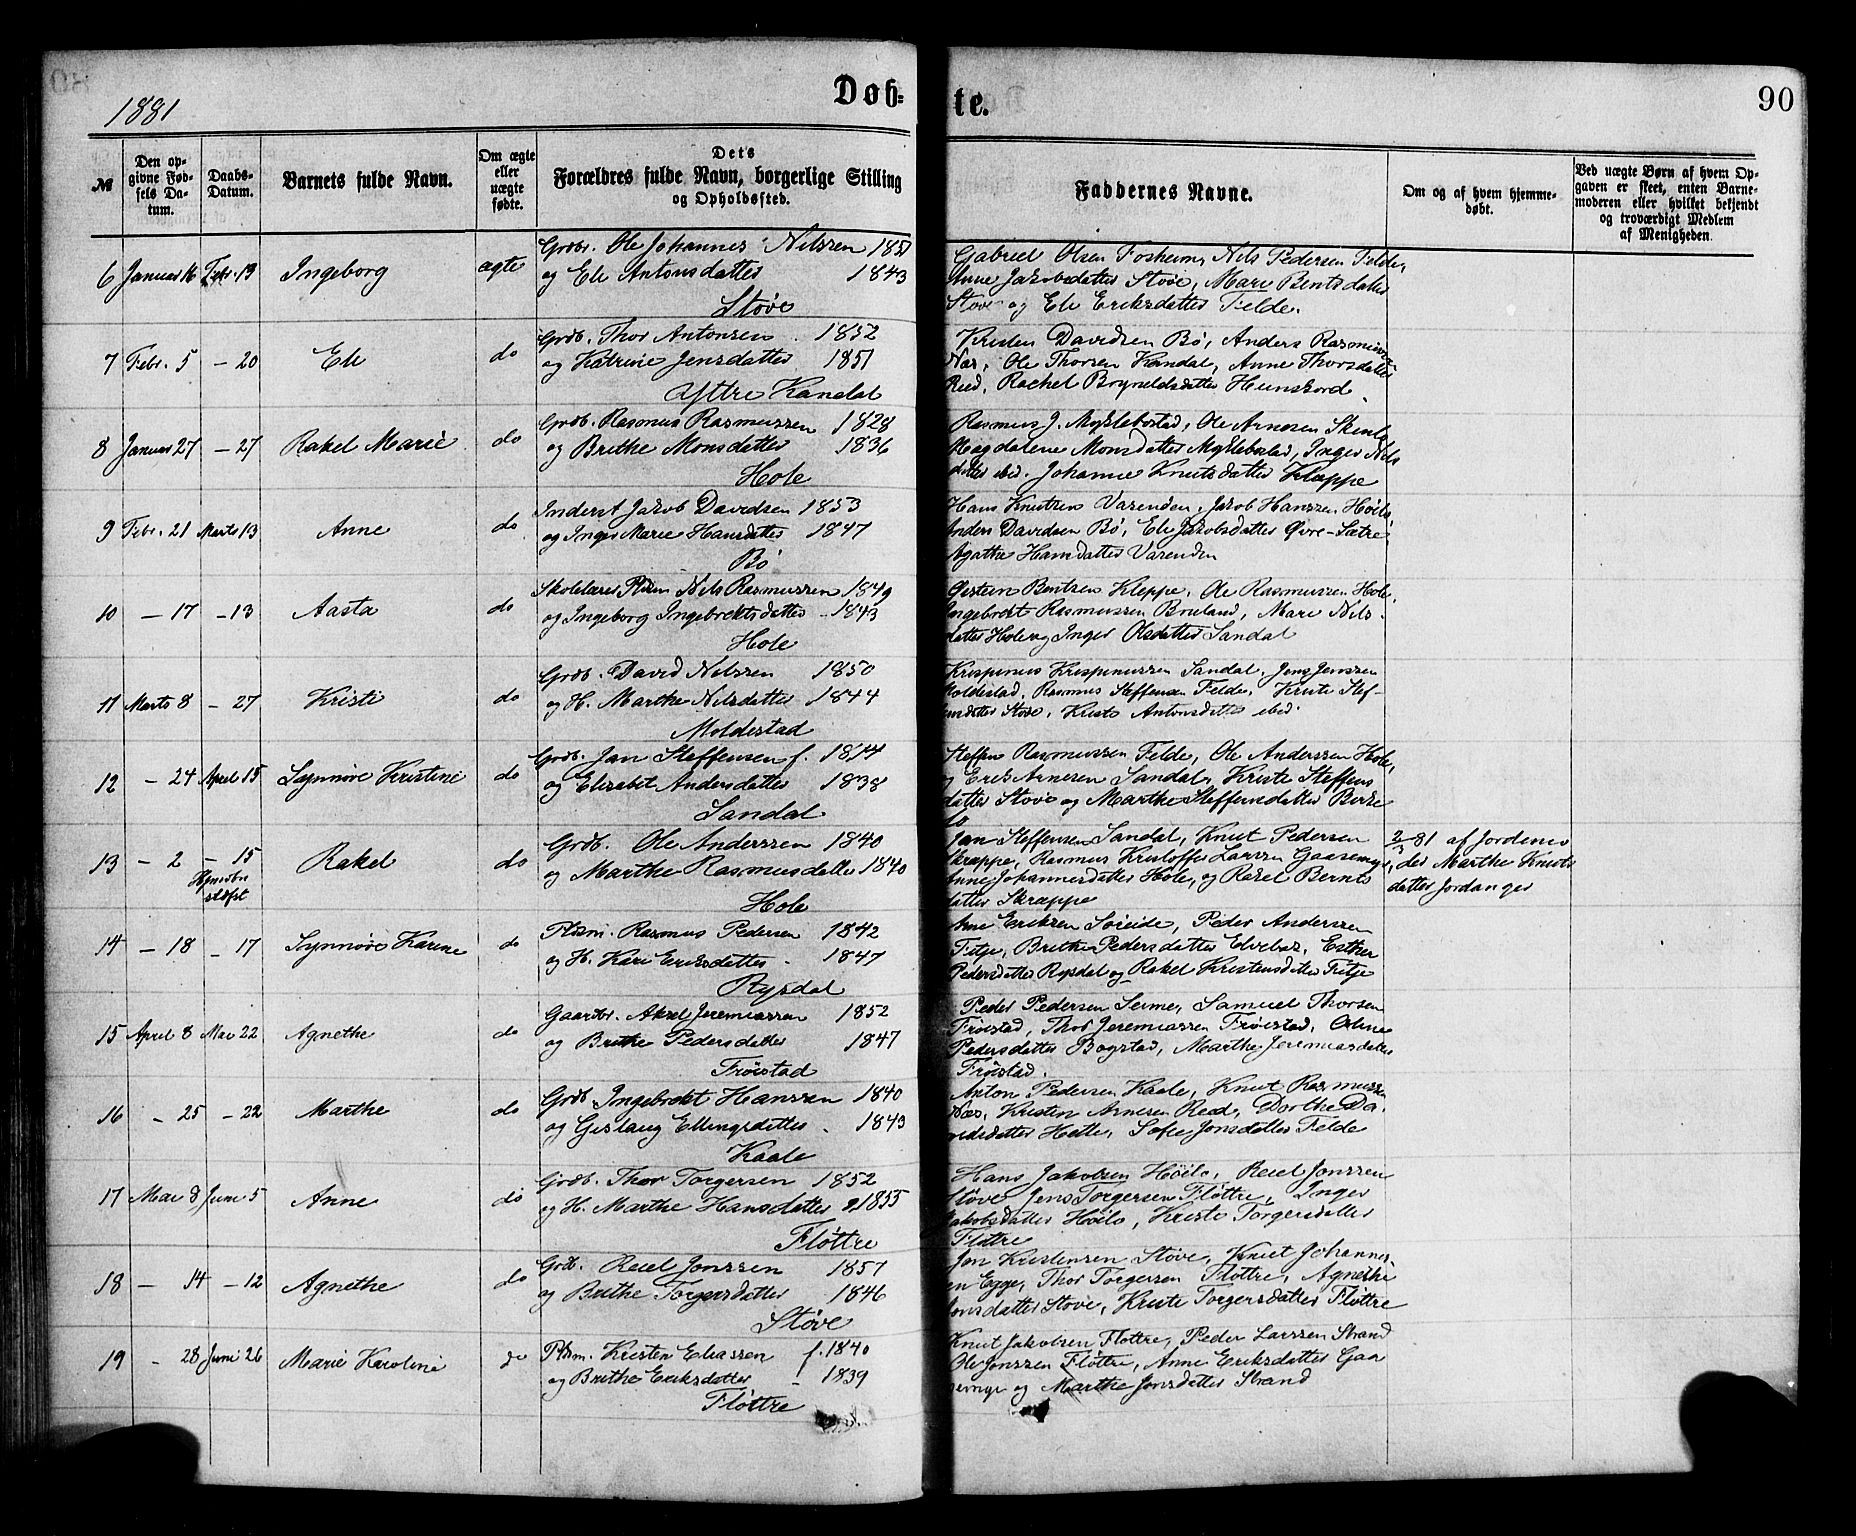 1881
Døb=
te.
90
№
Den op-
givne Fød-
sels Da-
tum.
Daabs-
Datum.
Barnets fulde Navn.
Om ægte
eller
uægte
fødte.
Dets
Forældres fulde Navn, borgerlige Stilling
og Opholdssted.
Faddernes Navne.
Om og af hvem hjemme-
døbt.
Ved uægte Børn af hvem Op-
gaven er skeet, enten Barne-
moderen eller hvilket bekjendt
og troværdigt Medlem
af Menigheden.
6 Januar 16 Febr. 19 Ingeborg ægte
Grdbr. Ole Johannes Nilssen 1851
og Eli Antonsdatter 1843
Støve
Gabriel Olsen Fosheim, Nils Pedersen Felde,
Anne Jakobsdatter Støve, Mari Bentsdatter
Støve og Eli Eriksdatter Felde.
7 Febr. 5 - 20 Eli do
Grdbr. Thor Antonsen 1852
og Katrine Jensdatter 1851
Yttre Kandal
Kristen Davidsen Bø, Anders Rasmussen
Næs, Ole Thorsen Kandal, Anne Thorsdatter
Reed, Rachel Brynildsdatter Hunskord.
8 Januar 27 - 27 Rakel Marie do
Grdb. Rasmus Rasmussen 1828
og Brithe Monsdatter 1836
Hole
Rasmus J. Myklebostad, Ole Arnesen
Magdalene Monsdatter Myklebostad, Inger Nils
datter ibid. Johanne Knutsdatter Kleppe
9 Febr. 21 Marts 13 Anne do
Inderst Jakob Davidsen 1853
og Inger Marie Hansdatter 1847
Bø
Hans Knutsen Varenden, Jakob Hanssen Høilo
Anders Davidsen Bø, Eli Jakobsdatter Øvre-Sætre
Agathe Hansdatter Varenden
10 - 17 - 13 Aasta do
Skolelærer Nils Rasmussen 1849
og Ingeborg Ingebrektsdatter - 1843
Hole
Gistein Bentsen Kleppe, Ole Rasmussen Hole,
Ingebrekt Rasmussen Bruland, Mari Nils-
datter Hole og Inger Olsdatter Sandal
11 Marts 8 - 27 Kristi do
Grdb. David Nilssen 1850
og H. Marthe Nilsdatter 1844
Moldestad
Krispinus Krispinussen Sandal, Jens Jenssen
Moldestad, Rasmus Steffensen Felde, Kristi Stef-
fensdatter Støve, Kristi Antonsdatter ibid.
12 - 24 April 15 Synnøve Kristine do
Grdb. Jan Steffensen f. 1844
og Elisabet Andersdatter 1838
Sandal
Steffen Rasmussen Felde, Ole Anderssen Hole,
og Erik Arnesen Sandal, Kristi Steffens
datter Støve og Marthe Steffensdatter Berge
lo
13 - 2 - 15 Rakel do
Grdb. Ole Anderssen 1840
og Marthe Rasmusdatter 1840
Hole
Jan Steffensen Sandal, Knut Pedersen
Skrappe, Rasmus Kristoffer Larsen Gaasemyr,
Anne Johannesdatter Hole, og Rakel Bernts
datter Skræppe
2/3 81 af Jordemo
der Marthe Knuts
datter Jordanger
14 - 18 - 17 Synnøve Karine do
Plsm. Rasmus Pedersen 1842
og H. Kari Eriksdatter 1847
Rysdal
Arne Eriksen Søreide, Peder Anderssen
Fitje, Brithe Pedersdatter Elvebø, Esther
Pedersdatter Rysdal og Rakel Kristensdatter Fitje
15 April 8 Mai 22 Agnethe do
Gaardbr. Aksel Jeremiassen 1852
og Brithe Pedersdatter 1847
Frøistad
Peder Pedersen Seime, Samuel Thorsen
Frøistad, Thor Jeremiassen Frøistad, Oline
Pedersdatter Bogstad, Marthe Jeremiasdatter
Frøistad.
16 - 25 - 22 Marthe do
Grdb. Ingebrekt Hanssen 1840
og Gislaug Ellingsdatter 1843
Kaale
Anton Pedersen Kaale, Knut Rasmussen
Næs, Kristen Arnesen Reed, Dorthe Da-
vidsdatter Hette, Sofie Jonsdatter Felde
17 Mai 8 Juni 5 Anne do
Grdb. Thor Torgersen 1852
og H. Marthe Hansdatter 1855
Fløttre
Hans Jakobsen Høilo, Reiel Jonssen
Støve, Jens Torgersen Fløttre, Inger
Jakobsdatter Høilo, Kristi Torgersdatter
Fløttre
18 - 14 - 12 Agnethe do
Grdb. Reiel Jonssen 1857
og Brithe Torgersdatter 1846
Støve
Jon Kristensen Støve, Knut Johannes
en Egge, Thor Torgersen Fløttre, Agnethe
Jonsdatter Støve, Kristi Torgersdatter Fløttre
19 - 28 Juni 26 Marie Karoline do
Plsm. Kristen Eliassen f. 1840
og Brithe Eriksdatter - 1839
Fløttre
Knut Jakobsen Fløttre, Peder Larssen Strand
Ole Jonssen Fløttre, Anne Eriksdatter Gaa
semyr og Marthe Jonsdatter Strand